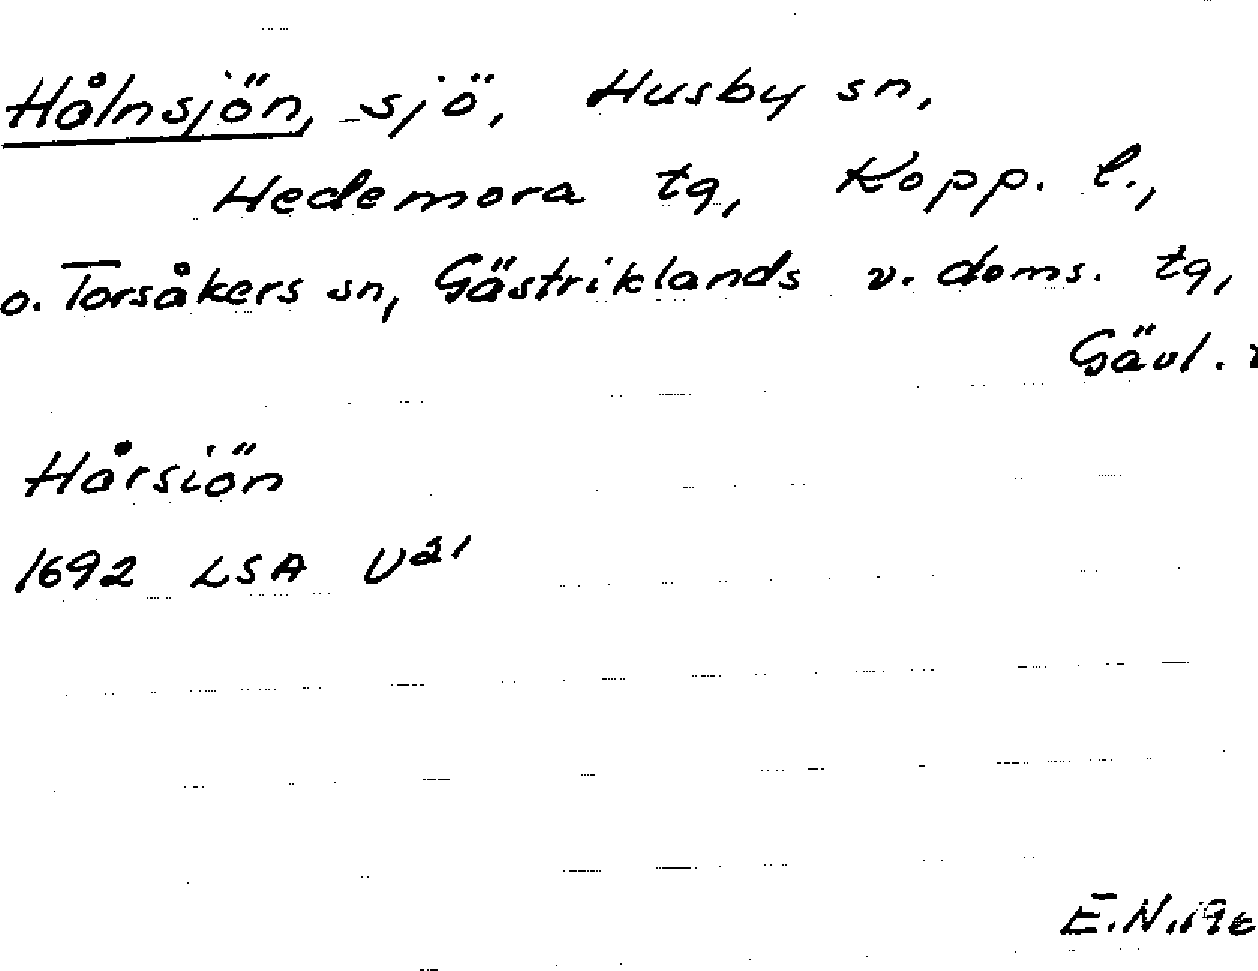 Hålnsjön, sjö, Husby sn,
Hedemora tg, Kopp. l.,
o. Torsåkers sn, Gästriklands v. doms. tg,
Gävl.
Hårsiön
1692 LSA U21
E.N.